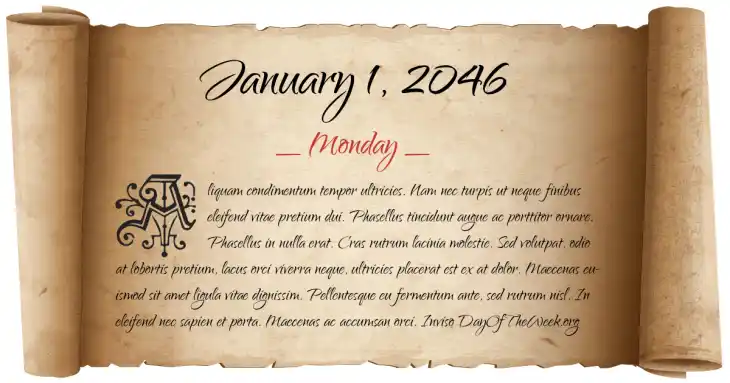 January 1, 2046
__ Monday __
Aliquam condimentum tempor ultricies. Nam nec turpis ut neque finibus
eleifend vitae pretium dui. Phasellus tincidunt augue ac porttitor ornare.
Phasellus in nulla erat. Cras rutrum lacinia molestie. Sed volutpat, odio
at lobortis pretium, lacus orci viverra neque, ultricies placerat est ex at dolor. Maecenas eu-
ismod sit amet ligula vitae dignissim. Pellentesque eu fermentum ante, sed rutrum nisl. In
eleifend nec sapien et porta. Maecenas ac accumsan orci. Inviso DayOfTheWeek.org